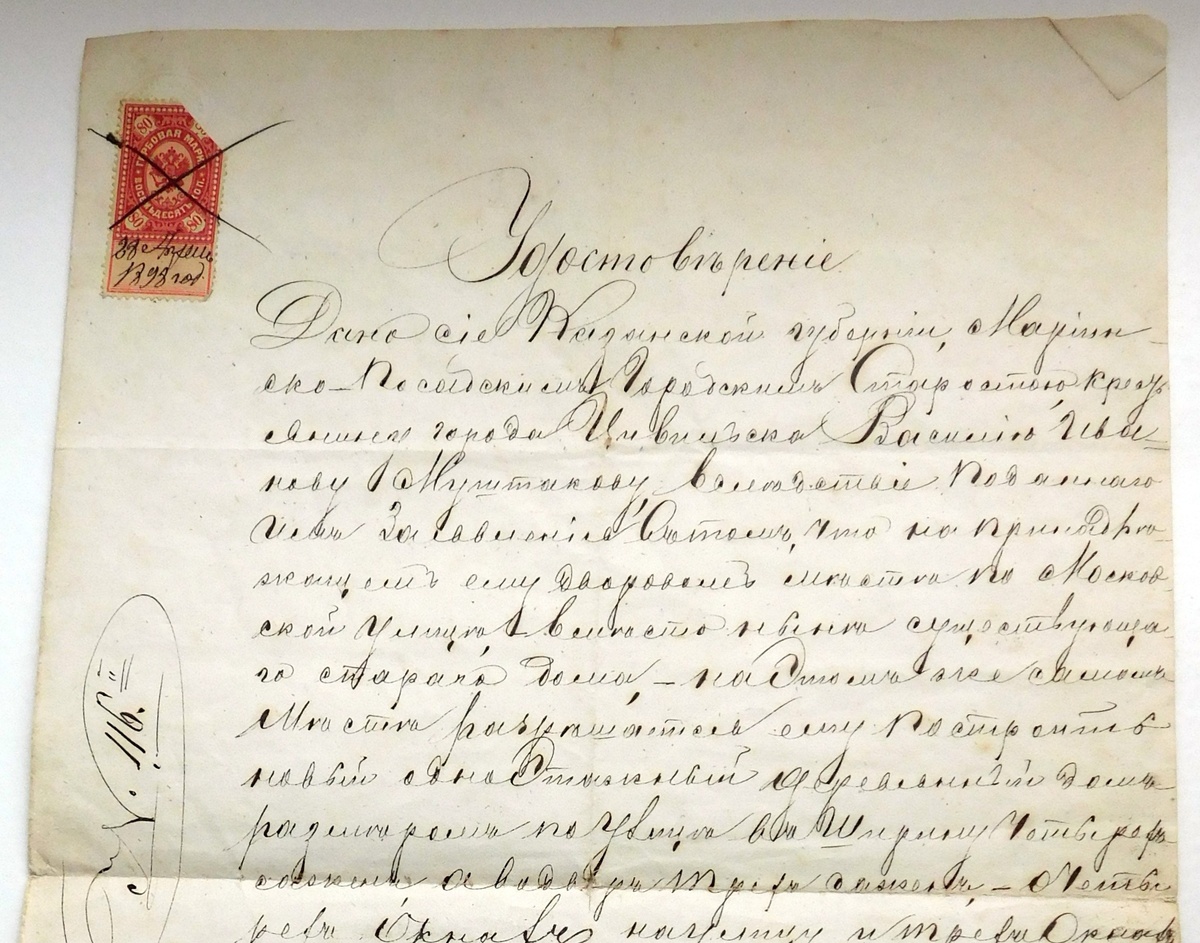 80
ГЕРБОВАЯ МАРКА
ВОСЕМЬДЕСЯТЪ КОП.
80 80
28 Апреля
1898 год
Удостовѣреніе
Дано сіе Казанской губерніи, Маріин-
ско-Посадскимъ Городскимъ Старостою, кресть
янину города Цивильска Василію Ива-
нову Муштакову, вслѣдствіе поданнаго
имъ Заявленія въ томъ, что на принадле-
жащемъ ему дворовомъ мѣстѣ по Москов-
ской улицѣ вмѣсто нынѣ существующа-
го стараго дома, - на Этомъ же самомъ
мѣстѣ разрѣшается ему построить
новый одноЭтажный деревянный домъ
размѣромъ по улицѣ въ ширину четырехъ
сажень а во дворъ трехъ сажень, - о четы
рехъ Окнахъ на улицу и трехъ Окнахъ
№ 116.